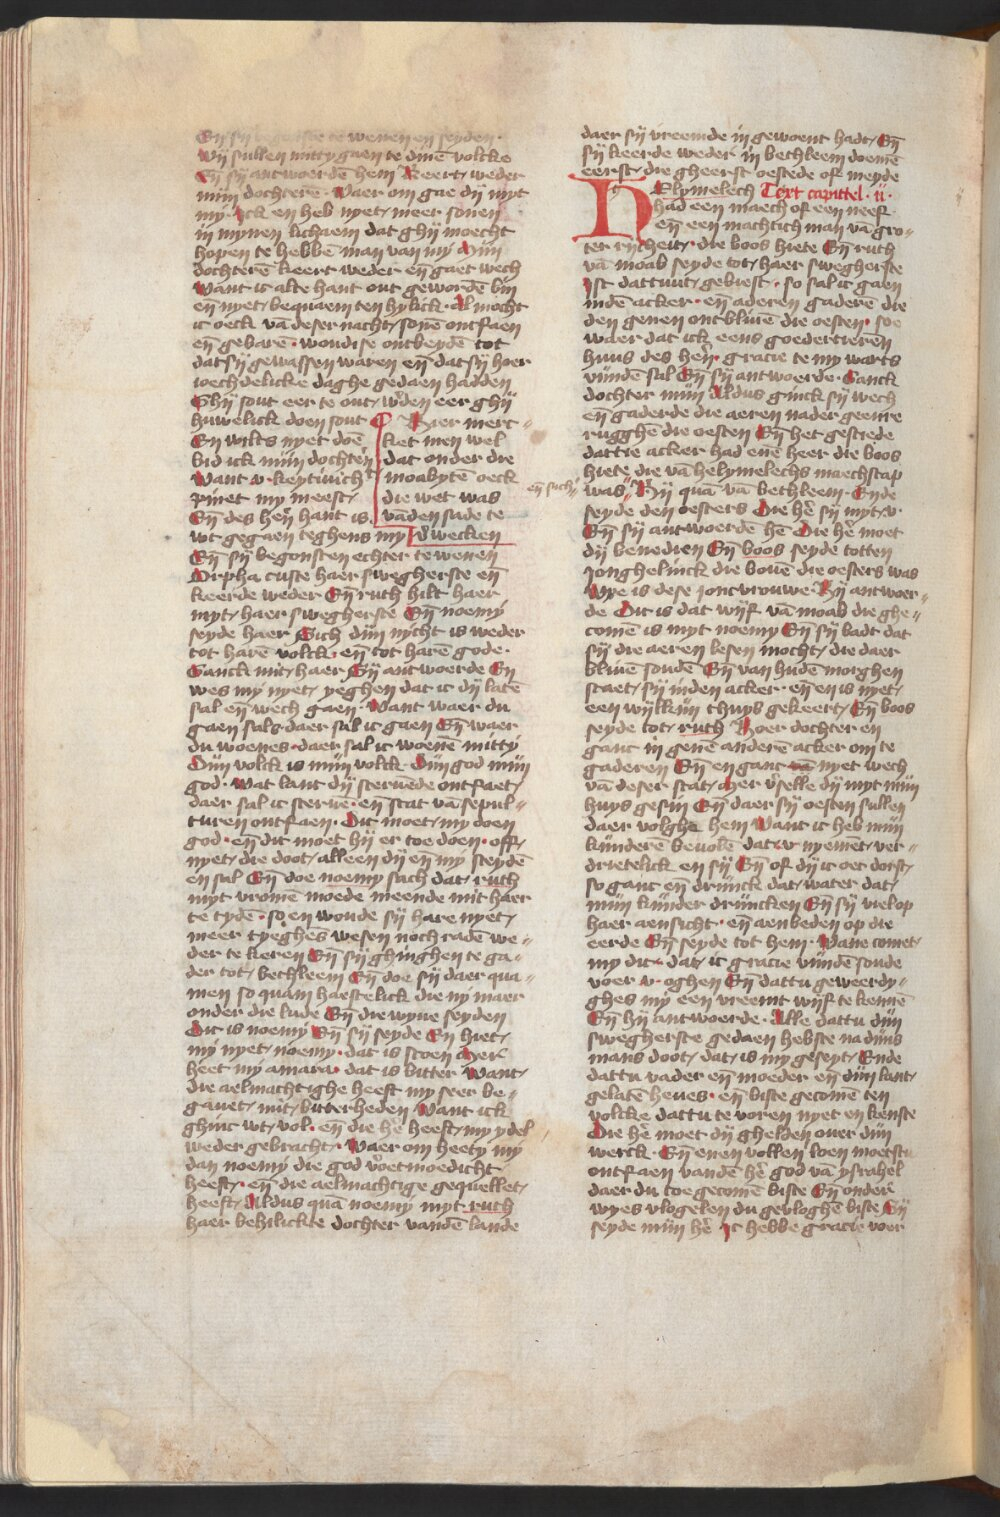 En̄ sy begonste te wenen en̄ seyden·
Wij sullen mitty gaen te dinē volcke
En̄ sij antwoerdē hem Keert weder
mijn dochterē· Waer om gae dij myt
my· Ick en heb nyet meer sonen
in mynen lichaem dat ghij moecht
hopen te hebbē man van my Mijn
dochterē keert weder en̄ gaet wech
Want ic alte hant out gewordē bin
en̄ nyet bequaem ten hylick· Al mocht
ic oeck vā deser nacht sonē ontfaen
en̄ gebarē· woudise ontbeydē tot
dat sij gewassen waren en̄ dat sij hoer
joechdelicke daghe gedaen hadden
Ghij sout eer te out w̄den eer ghij
huwelick doen sout
En wilts nyet doē
bid ick mijn dochterē
Want v· keytivicht
pinet my meest
En̄ des herē hant is
wt gegaen teghens my
Hier merc⸗
ket men wel
dat onder die
moabytē oeck
die wet was
vāden sade te
v̄wecken
En̄ sij begonsten echter te wenen
Orpha custe haer swegherste en̄
keerde weder En̄ ruth hilt haer
myt haer swegherste En̄ noemy
seyde haer Sich dijn nycht is weder
tot harē volck· en̄ tot harē gode·
Ganck mit haer Sij antwoerde En
wes my nyet yeghen dat ic dij latē
sal en̄ wech gaen· Want waer du
gaen sals· daer sal ic gaen En̄ waer
du woenes· daer sal ic woenē mitty
Dijn volck is mijn volck· Dijn god mijn
god· Wat lant dij steruēde ontfaet
daer sal ic sterue· en̄ stat vā sepul⸗
turen ontfaen· Dit moet my doen
god· en̄ dit moet hij er toe doen· off
nyet die doot alleen dij en̄ my sceydē
en sal En̄ doe noemy sach dat ruth
myt vromē moede meende mit haer
te tydē· so en woude sij hare nyet
meer tyeghēs wesen noch radē we⸗
der te keren En̄ sij ghinghen te ga⸗
der tot bethleem En̄ doe sij daer qua⸗
men so quam haestelick die nymaer
onder die lude En̄ die wyue seyden
Dit is noemy En̄ sij seyde En hiet
my nyet noemy· dat is scoen Mer
heet my amara· dat is bitter Want
die aelmachtighe heeft my seer be⸗
gauet mit bitterheden Want ick
ghinc wt vol· en̄ die hē heeft my ydel
weder gebracht· Waer om heety my
dan noemy die god v̄oetmoedicht
heeft· en̄ die aelmachtige gequellet
heeft Aldus quā noemy myt ruth
haer behilickte dochter vandē lande
daer sij vreemde in gewoent hadt En̄
sij keerde weder in bethleem doemē
eerst die gheerst oestede of meyde
Elymelech Text capittel· ii·
Had een maech of een neef
en̄ een machtich man vā gro⸗
ter rijcheit· die boos hiete En̄ ruth
vā moab seyde tot haer swegherste
Ist dattuut gebiest· so sal ic gaen
inden acker· en̄ aderen gaderē die
den genen ontbliuē die oesten· soe
waer dat ick eens goedertierēn
huus des hēn gracie te my warts
vindē sal En̄ sij antwoerde· Ganck
dochter mijn Aldus ginck sij wech
en̄ gaderde die aeren nader geenre
rugghē die oesten En̄ het gesciede
dattie acker had enē heer die boos
hiete die vā helymelechs maechscap
en̄ sich
was· Hij quā vā bethleem· Ende
seyde den oesters Die hē sij myt v·
En̄ sij antwoerdē hē Die hē moet
dij benedien En̄ boos seyde totten
Jonghelinck die bouē die oesters was
Wye is dese joncvrouwe· Hij antwoer⸗
de Dit is dat wijf vā moab die ghe⸗
comē is myt noemy En̄ sij badt dat
sij die aeren lesen mocht die daer
bliuē soudē En̄ van hudē morghen
staet sij inden acker· en̄ en is nyet
een wijlkijn thuys gekeert En̄ boos
seyde tot ruth Hoer dochter en
ganc in genē anderē acker om te
gaderen En̄ en ganc nyet wech
vā deser stat Mer v̄selle dij myt mijn
huys gesin En̄ daer sij oesten sullen
daer volghe hem Want ic heb mijn
kijnderē beuolē dat v· nyemēt ver⸗
drietelick en sij En̄ of dij ic oec dorst
so ganc en̄ drinck dat water dat
mijn kijnder drincken En̄ sij viel op
haer aensicht· en̄ aenbeden op die
eerde En̄ seyde tot hem· Wane comet
my dit dat ic gracie vīndē soude
voer v· oghen En̄ dattu geweerdy⸗
ghes my een vreemt wijf te kennē
En̄ hij antwoerde· Alle dattu dijn
swegherste gedaen hebste na dijns
mans doot dat is my geseyt Ende
dattu vader en̄ moeder en̄ dijn lant
gelatē heues· en̄ biste gecomē ten
volcke dattu te voren nyet en kenste
Die hē moet dij ghelden ouer dijn
werck· En̄ enen vollen loen moetstu
ontfaen vandē hē god vā ysrahel
daer du toe gecomē biste En̄ onder
wyes vlogelen du gevloghē biste Sij
seyde mijn hē Ic hebbe gracie voer